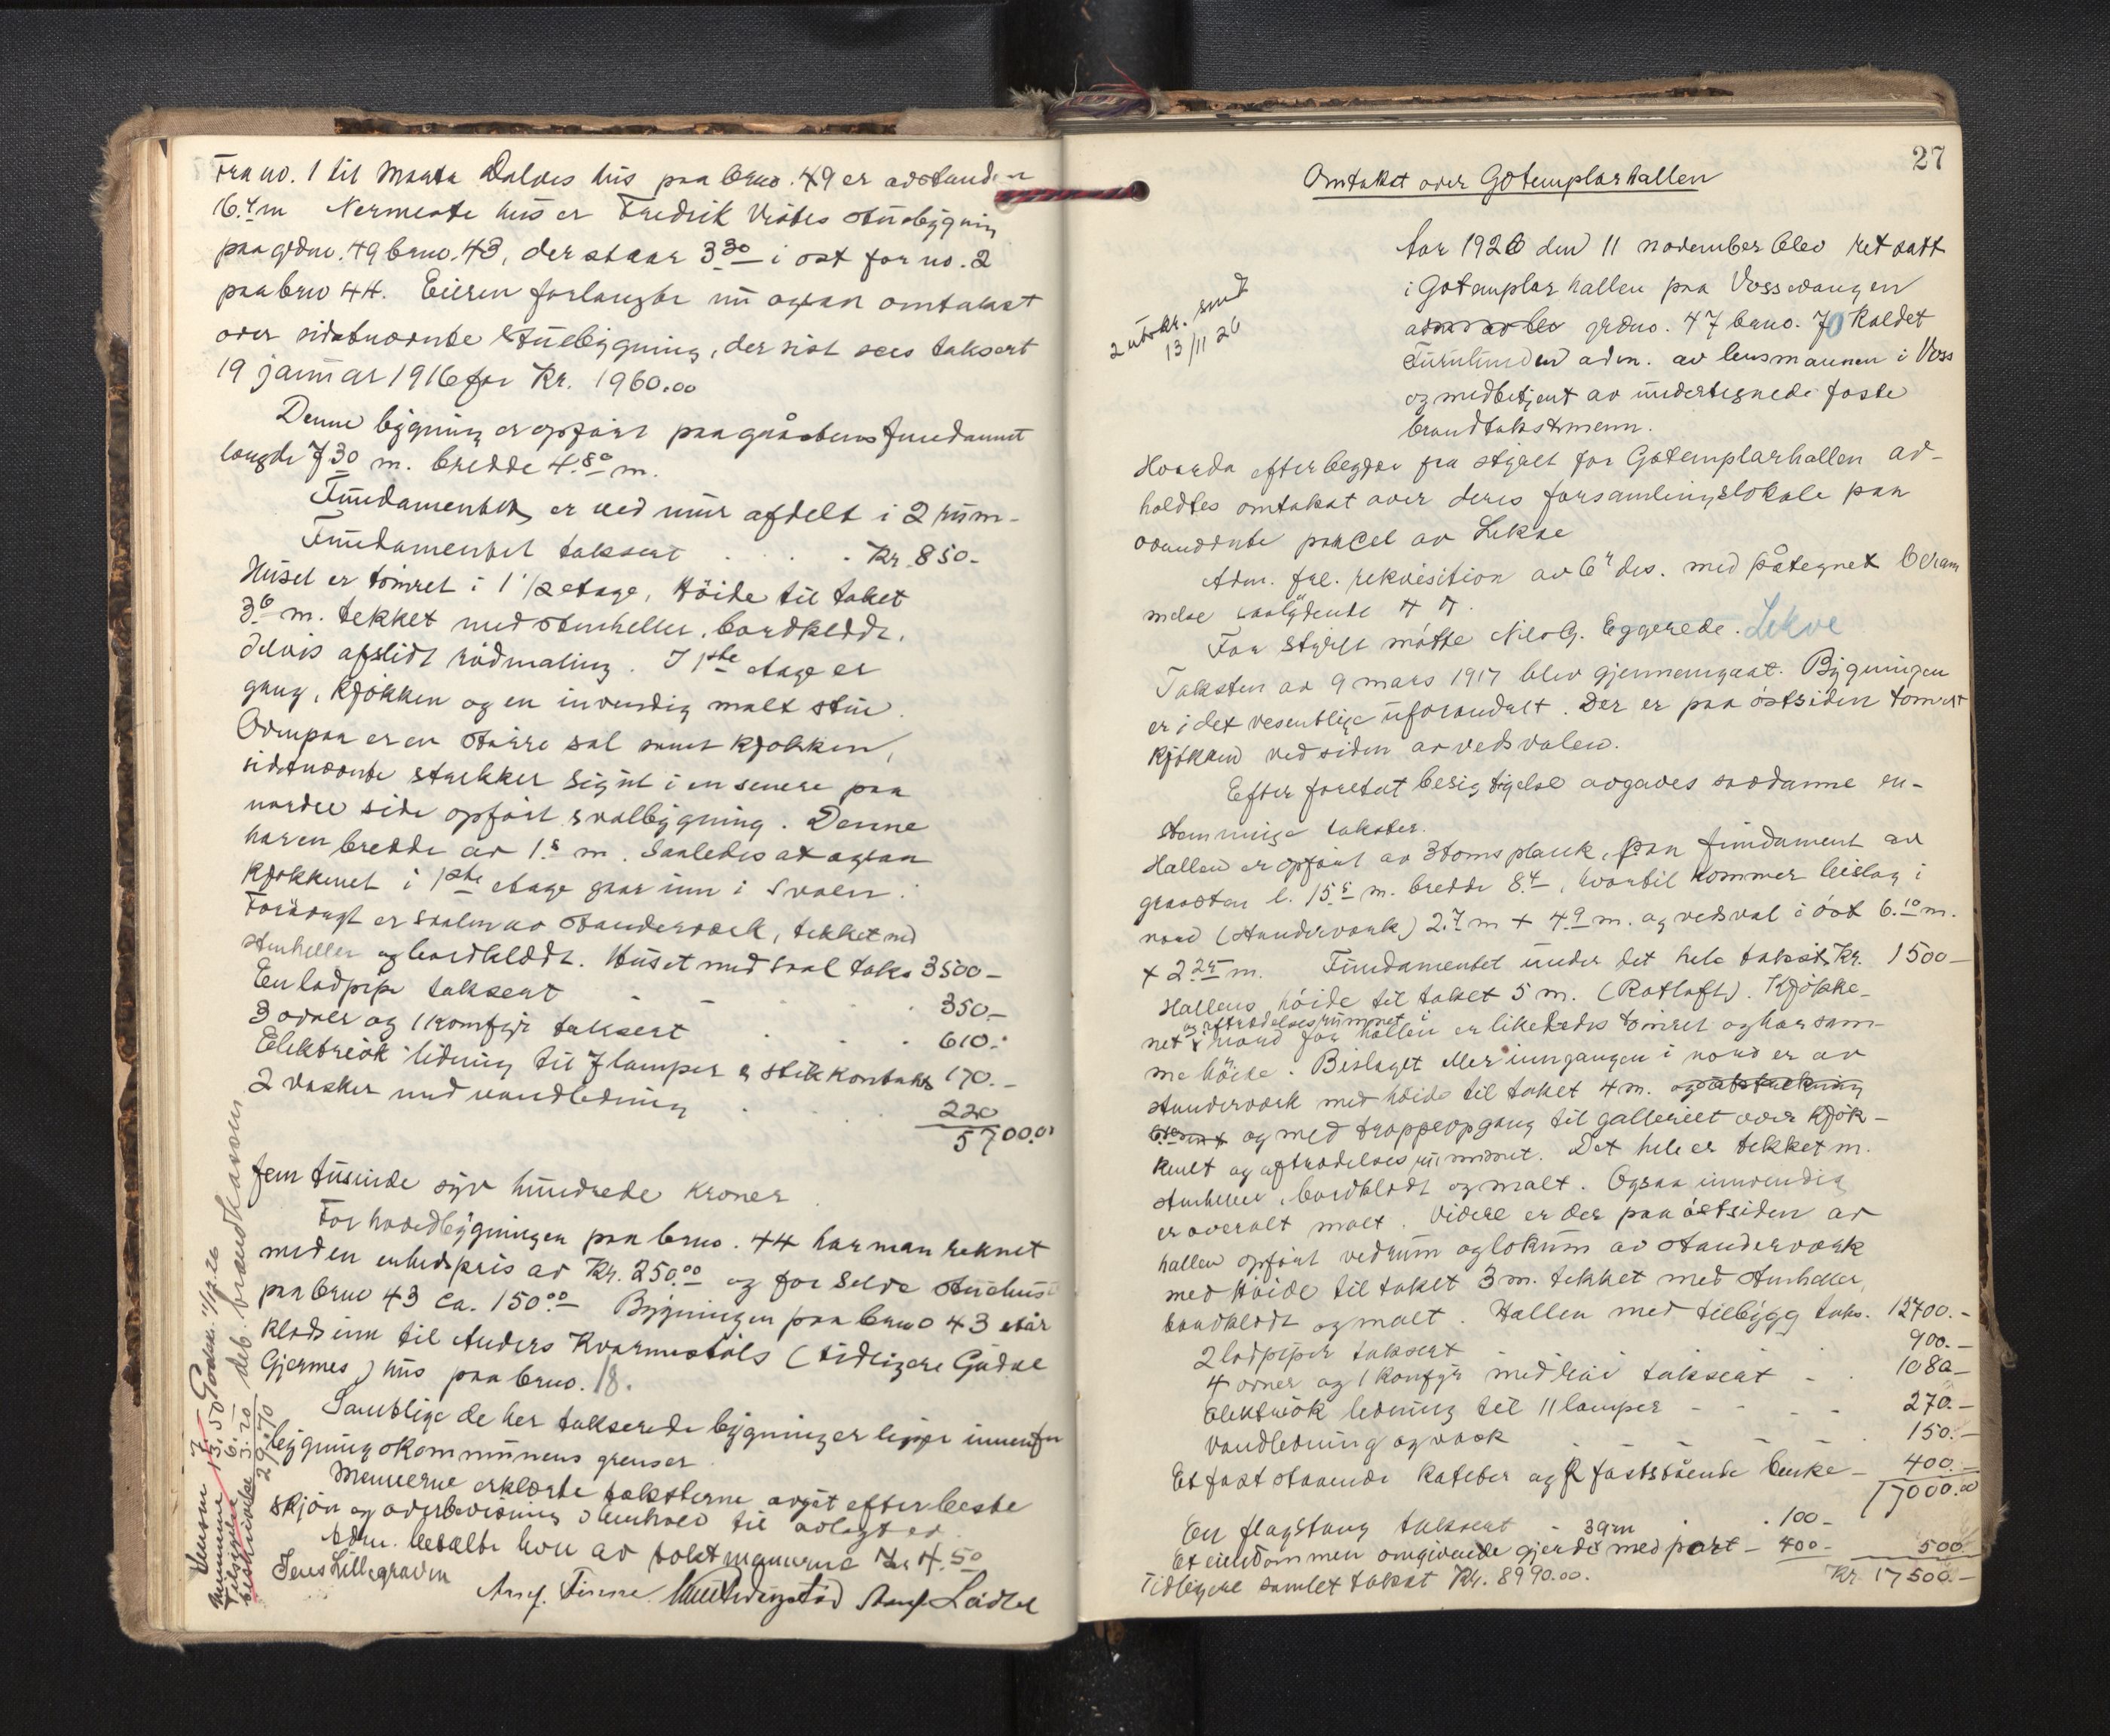 Fra no. 1 til Marta Dalves hus paa brno. 49 er avstanden
16.4 m Nermeste hus er Fredrik Vistes stuebygning
paa grdno. 49 brno. 43, der staar 3 30 i ost for no. 2
paa brno 44. Eieren forlangte nu ogsaa omtakst
over sidstnævnte stuebygning, der sist sees taksert
19 januar 1916 for Kr. 1960.00
Denne bygning er opført paa gråstens fundament
længde 7 30 m. bredde 4.80 m.
Fundamentet er ved mur afdelt i 2 rum-
Fundamentet taksert . . . . Kr. 850-
Huset er tømret i 1 1/2 etage, Höide til taket
3 6 m. tekket med stenheller, bordkledt,
delvis afslidt rödmaling. I 1ste etage er
gang, kjøkken og en invendig malt stue.
Ovenpaa er en større sal samt kjøkken,
sidstnævnte strekker sig ut i en senere paa
nordre side opført svalbygning. Denne
har en bredde av 1.5 m. Saaledes at ogsaa
kjøkkenet i 1ste etage gaar inn i svalen.
Forøvrigt er svalen av standerværk, tekket med
stenheller og bordklædt. Huset med sval taks 3500-
En ladpipe taksert - - - 350.-
3 ovner og 1 komfyr taksert . . . 610.-
Elektrisk ledning til 7 lamper & stikkontakt 170.-
2 vasker med vandledning . . 220
5700.00
fem tusinde syv hundrede kroner
For hovedbygningen paa brno. 44 har man reknet
med en enhedspris av Kr. 250.00 og for selve stuehuset
paa brno 43 ca. 150.00 Bygningen paa brno 43 står
klods inn til Anders Kvarmestøls (tidligere Gudve
Gjermes) hus paa brno. 18.
Samtlige de her takserede bygninger ligger innenfor
bygningskommunens grenser.
Mennerne erklærte taksterne avgit efter beste
skjøn og overbevisning i henhold til avlagt ed.
Adm. betalte hver av takstmennerne Kr 4.50
Jens Lillegraven
Ansf. Finne.
deb. brandkassen
27
Omtakst over Gotemplarhallen
Aar 1926 den 11 november blev ret satt
i Gotemplarhallen paa Vossevangen
grdno. 47 brno. 70 kaldet
Furulunden adm. av lensmannen i Voss
og medbetjent av undertegnede faste
brandtakstmenn.
2 utskr. sendt
13/11 26
Hvorda efter begjær fra styret for Gotemplarhallen av-
holdtes omtakst over deres forsamlingslokale paa
ovennevnte parcel av Lekve
Adm. frl. rekvisition av 6" ds. med påtegnet beram
melse saalydende # #.
For styret møtte Nils G. Eggerede. Lekve
Taksten av 9 mars 1917 blev gjennemgaat. Bygningen
er i det vesentlige uforandert. Der er paa östsiden tomret
kjökken ved siden av vedsvalen.
Efter foretat besigtigelse avgaves saadanne en-
stemmige takster.
Hallen er opført av 3toms plank, paa fundament av
graasten l. 15.5 m. bredde 8.4, hvortil kommer bislag i
nord (standerverk) 2.7 m + 4.9 m. og vedsval i öst 6.10 m.
+ 2 25 m. Fundamentet under det hele takst Kr. 1500-
Hallens höide til taket 5 m. (Rotloft). Kjökke-
og aftrædelsesrummet i
net i nord for hallen er likeledes tömret og har sam-
me höide. Bislaget eller inngangen i nord er av
standerværk med höide til taket 4 m.
og med trappeopgang til galleriet over kjök-
kenet og aftrædelsesrummet. Det hele er tekket m.
stenheller, bordklædt og malt. Ogsaa innvendig
er overalt malt. Videre er der paa östsiden av
hallen opført vedrum og lokum av standerværk
med höide til taket 3 m. tekket med stenheller,
bordklædt og malt. Hallen med tilbygg taks. 12700.-
2 ladpiper taksert 900.-
4 ovner og 1 komfyr med rør taksert - . 1080-
Elektrisk ledning til 11 lamper - - - - 270.-
Vandledning og vask - - - - 150.-
Et fast staaende kateter og 2 faststående benke - 400.-
17000.00
En flagstang taksert - . 100-
39m
Et eiendommen omgivende gjerde med port - 400- 500
Tidligere samlet takst Kr. 8990.00. Kr. 17500.-